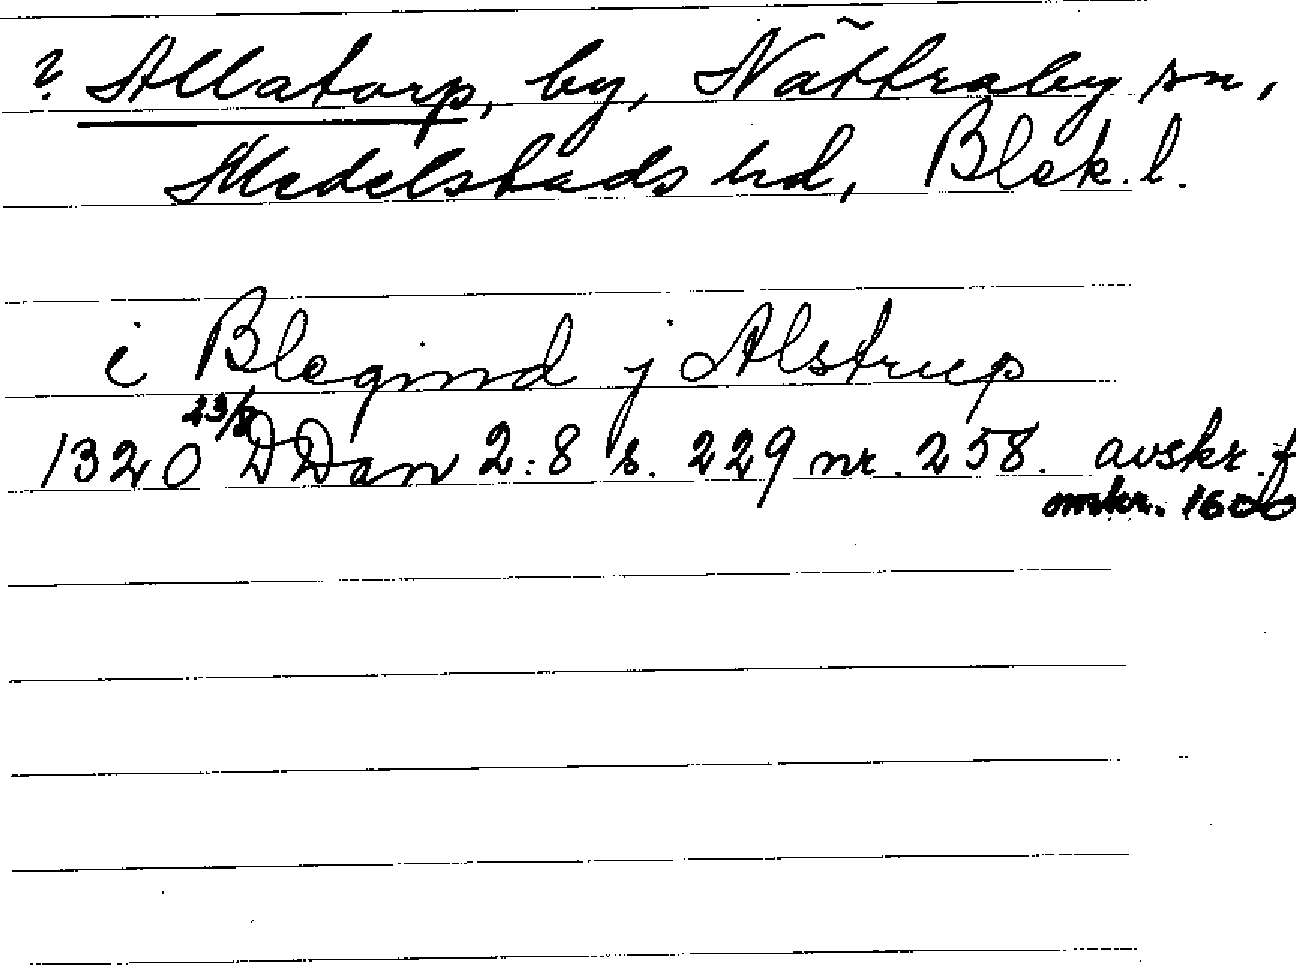 ? Allatorp, by, Nättraby sn,
Medelstads hd, Blek. l.
i Blegind j Alstrup
1320 23/ DDan 2:8 s. 229 nr. 258. avskr. f
omkr. 1600